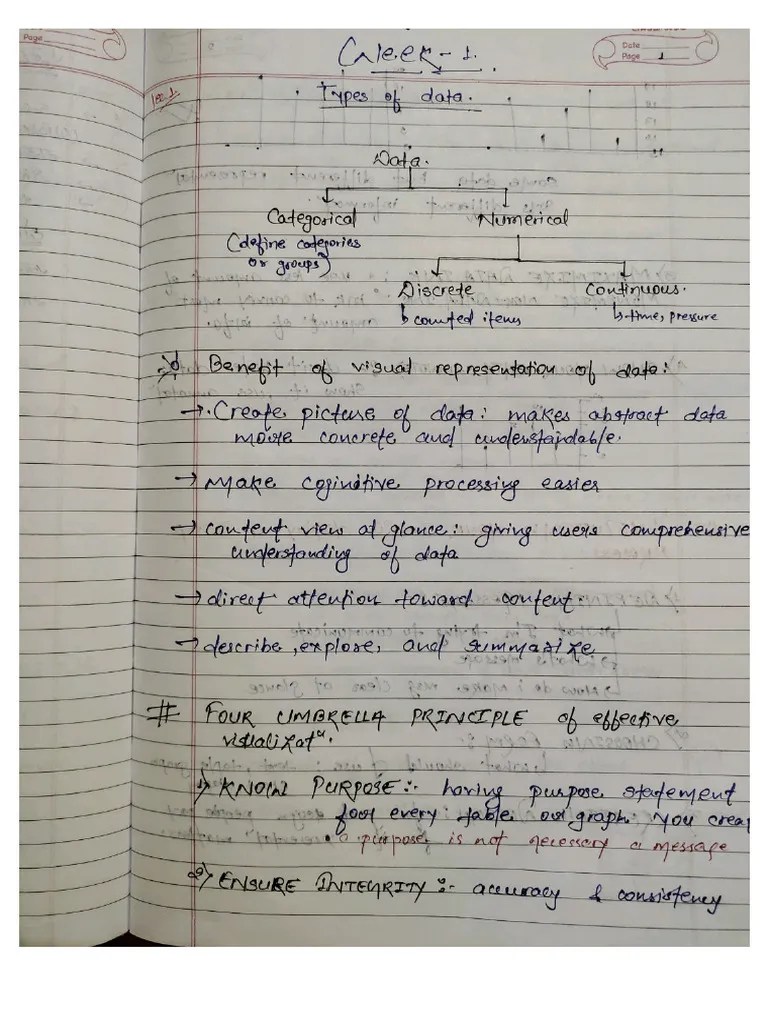 Page
Date
Page 1
Week-1.
Lec.1.
Types of data.
Data.
Categorical Numerical
(define categories
or groups)
Discrete Continuous.
↳ counted items ↳ time, pressure
Benefit of visual representation of data:
→ Create picture of data: makes abstract data
more concrete and understandable.
→ make coginitive processing easier
→ content view at glance: giving users comprehensive
understanding of data
→ direct attention toward content.
→ describe, explore, and summarize
# FOUR UMBRELLA PRINCIPLE of effective
visualizatⁿ.
1) KNOW PURPOSE:- having purpose statement
for every table or graph you crea
a purpose, is not necessary a message
2) ENSURE INTEGRITY:- accuracy & consistency